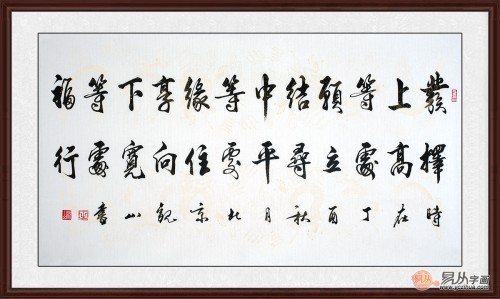 發上等願結中等緣享下等福
擇高處立尋平處住向寬處行
時在丁酉秋月北京魏山書
易从字画
www.yczihua.com